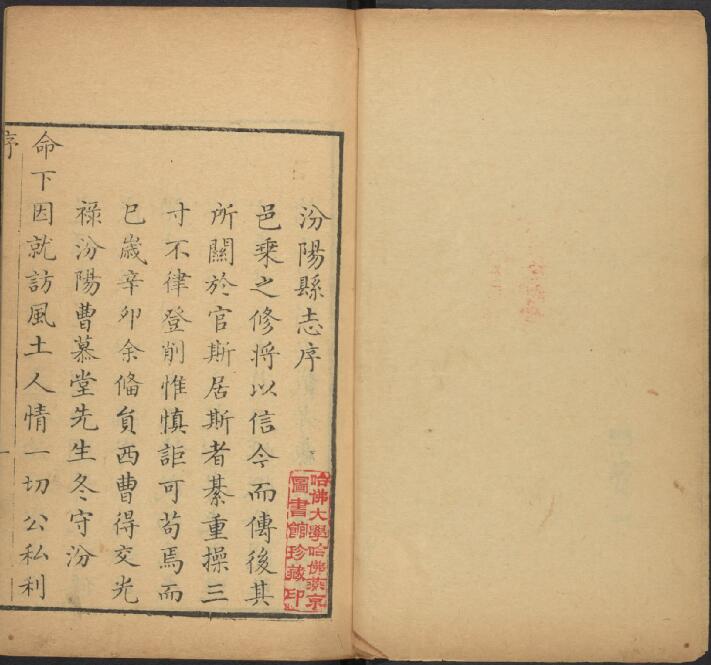 汾陽縣志序
邑乗之修將以信今而傳後其
所關於官斯居斯者綦重操三
寸不律登削惟慎詎可苟焉而
已歲辛卯余備負西曹得交光
禄汾陽曹慕堂先生冬守汾
命下因就訪風土人情一切公私利
序
一
哈佛大學哈佛燕京
圖書館珍藏印